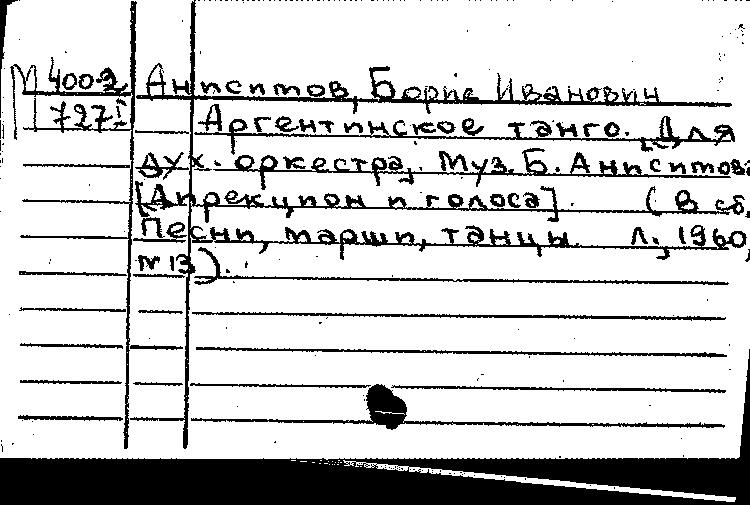 М 400-2 Анисимов, Борис Иванович
727I Аргентинское танго. Для
дух. оркестра. Муз. Б. Анисимова
[Дирекцион и голоса]. (В сб.
Песни, марши, танцы. Л., 1960,
№ 13).